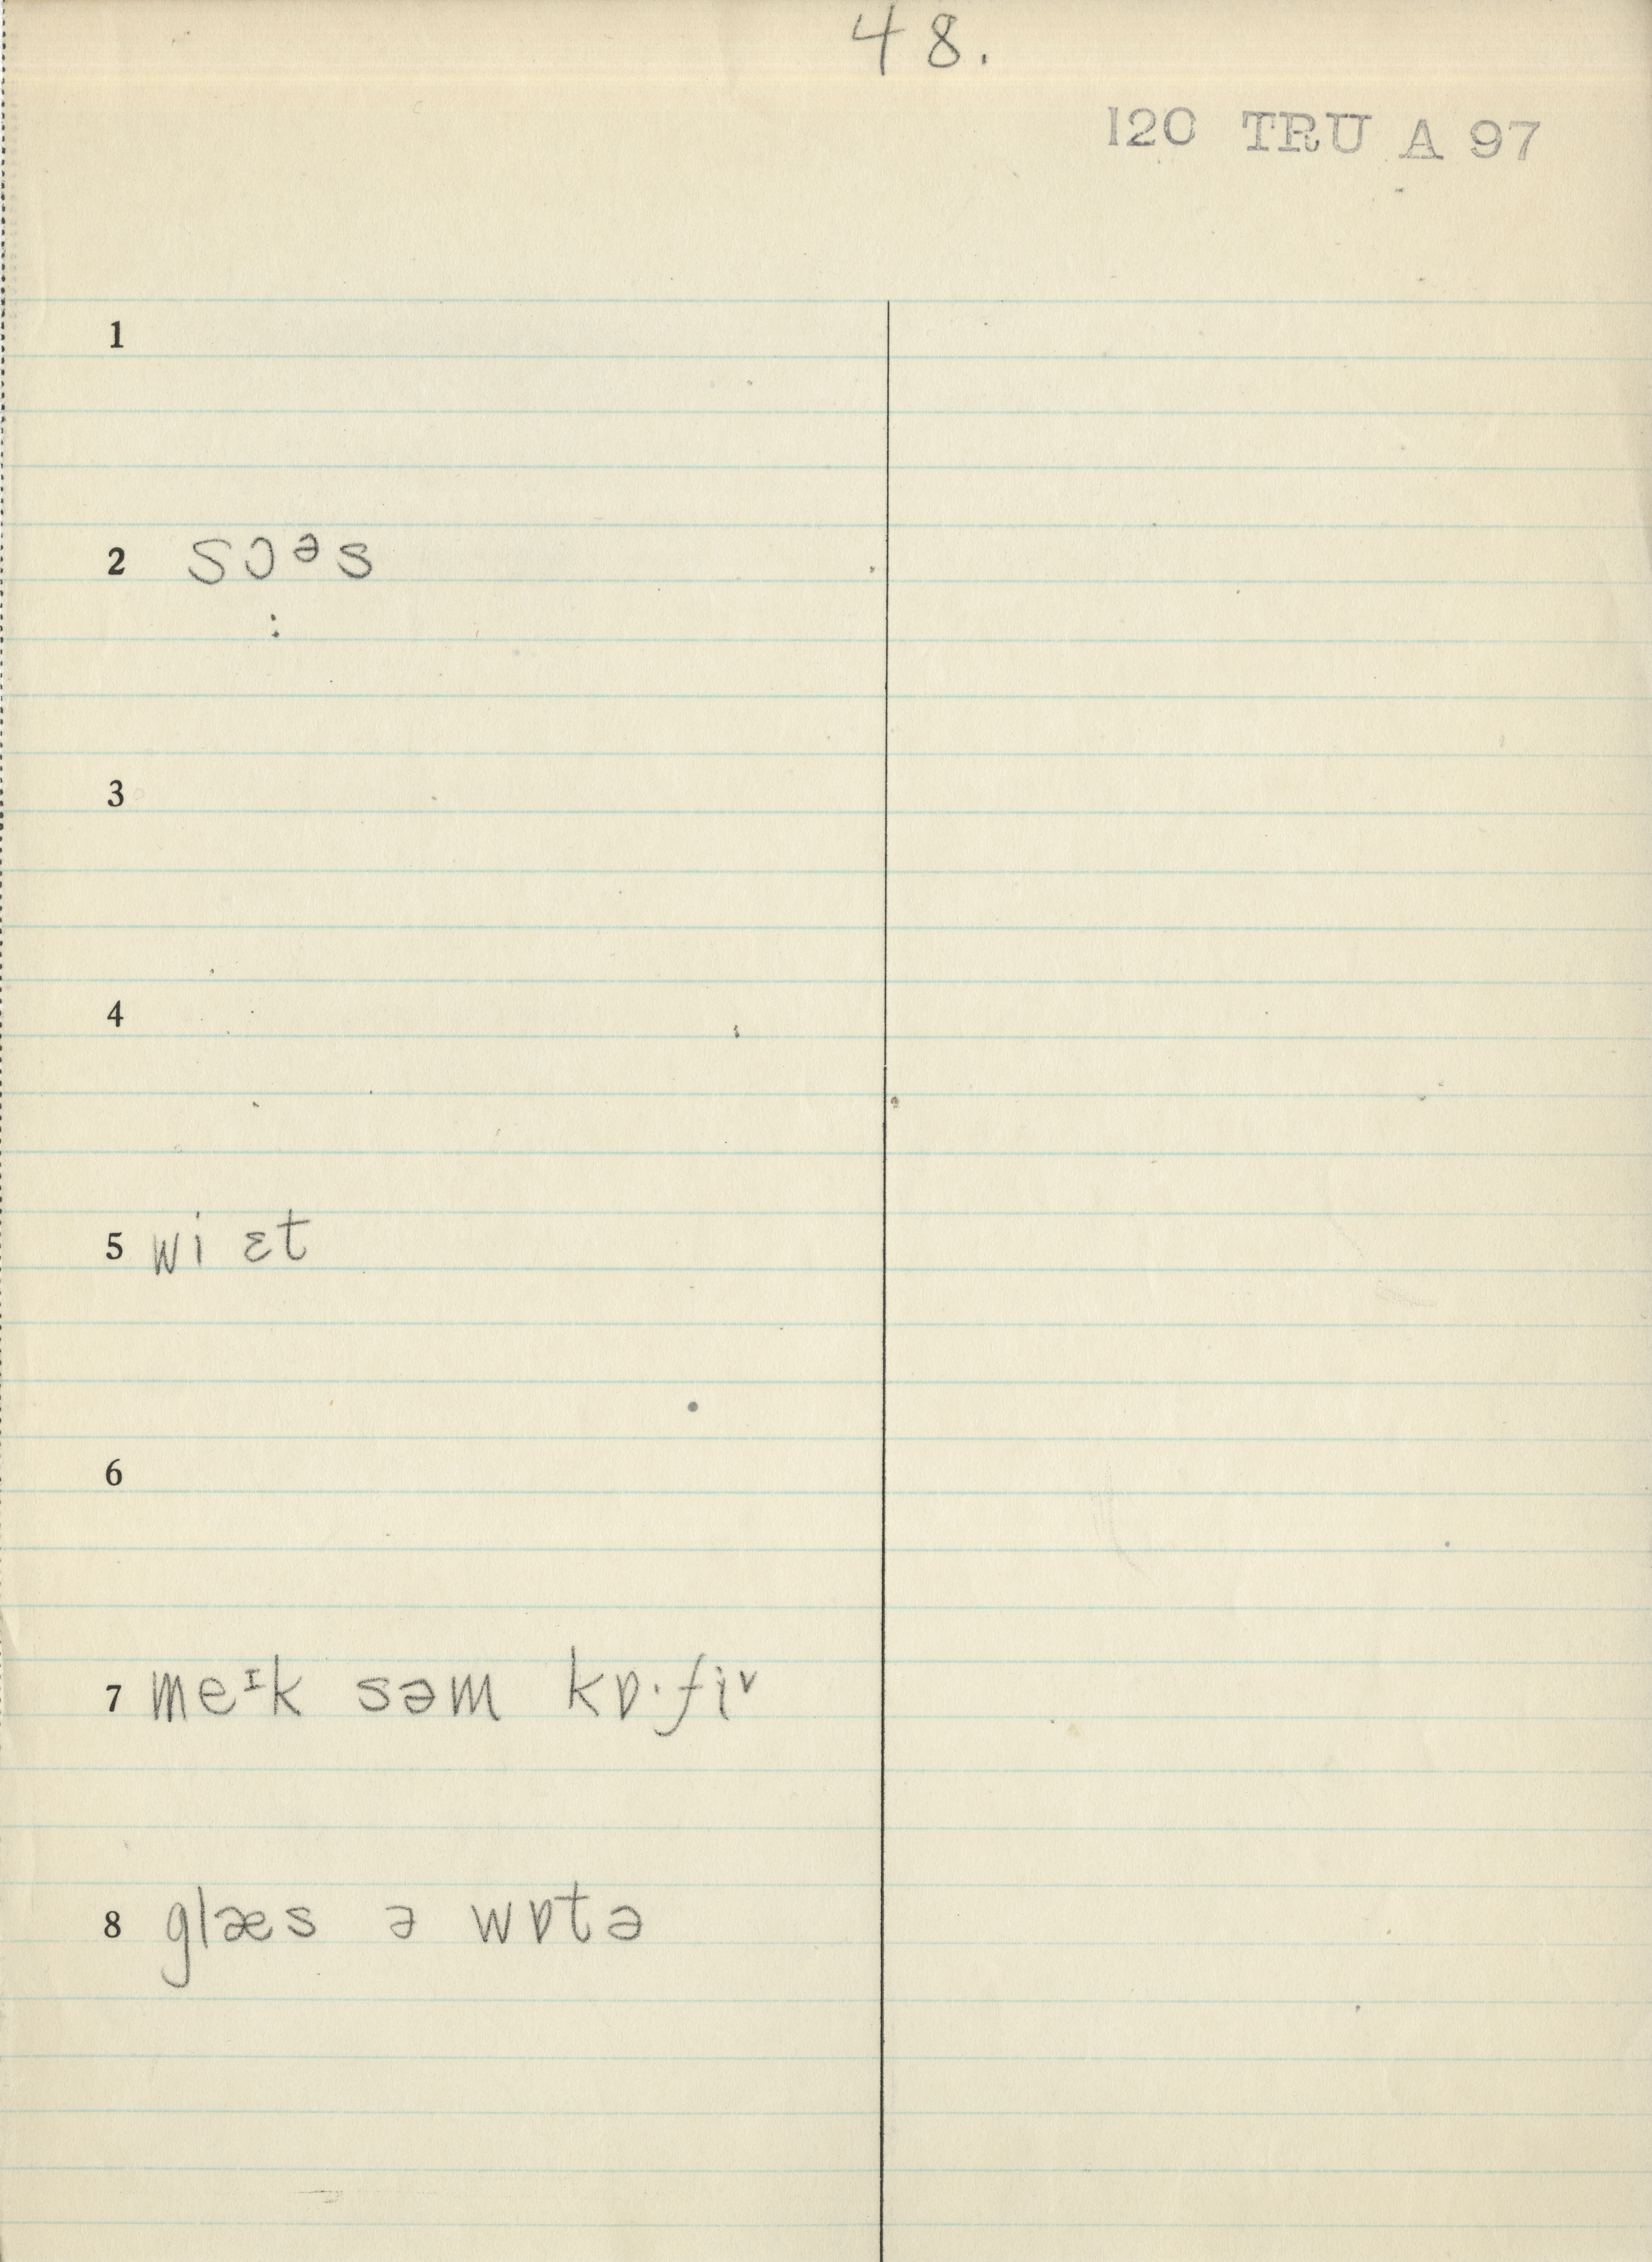 48.
120 TRU A 97
1
2 sɔᵊs
:
3
4
5 wi ɛt
6
7 meᶦk səm kɒ·fiᵛ
8 glæs ə wɒtə